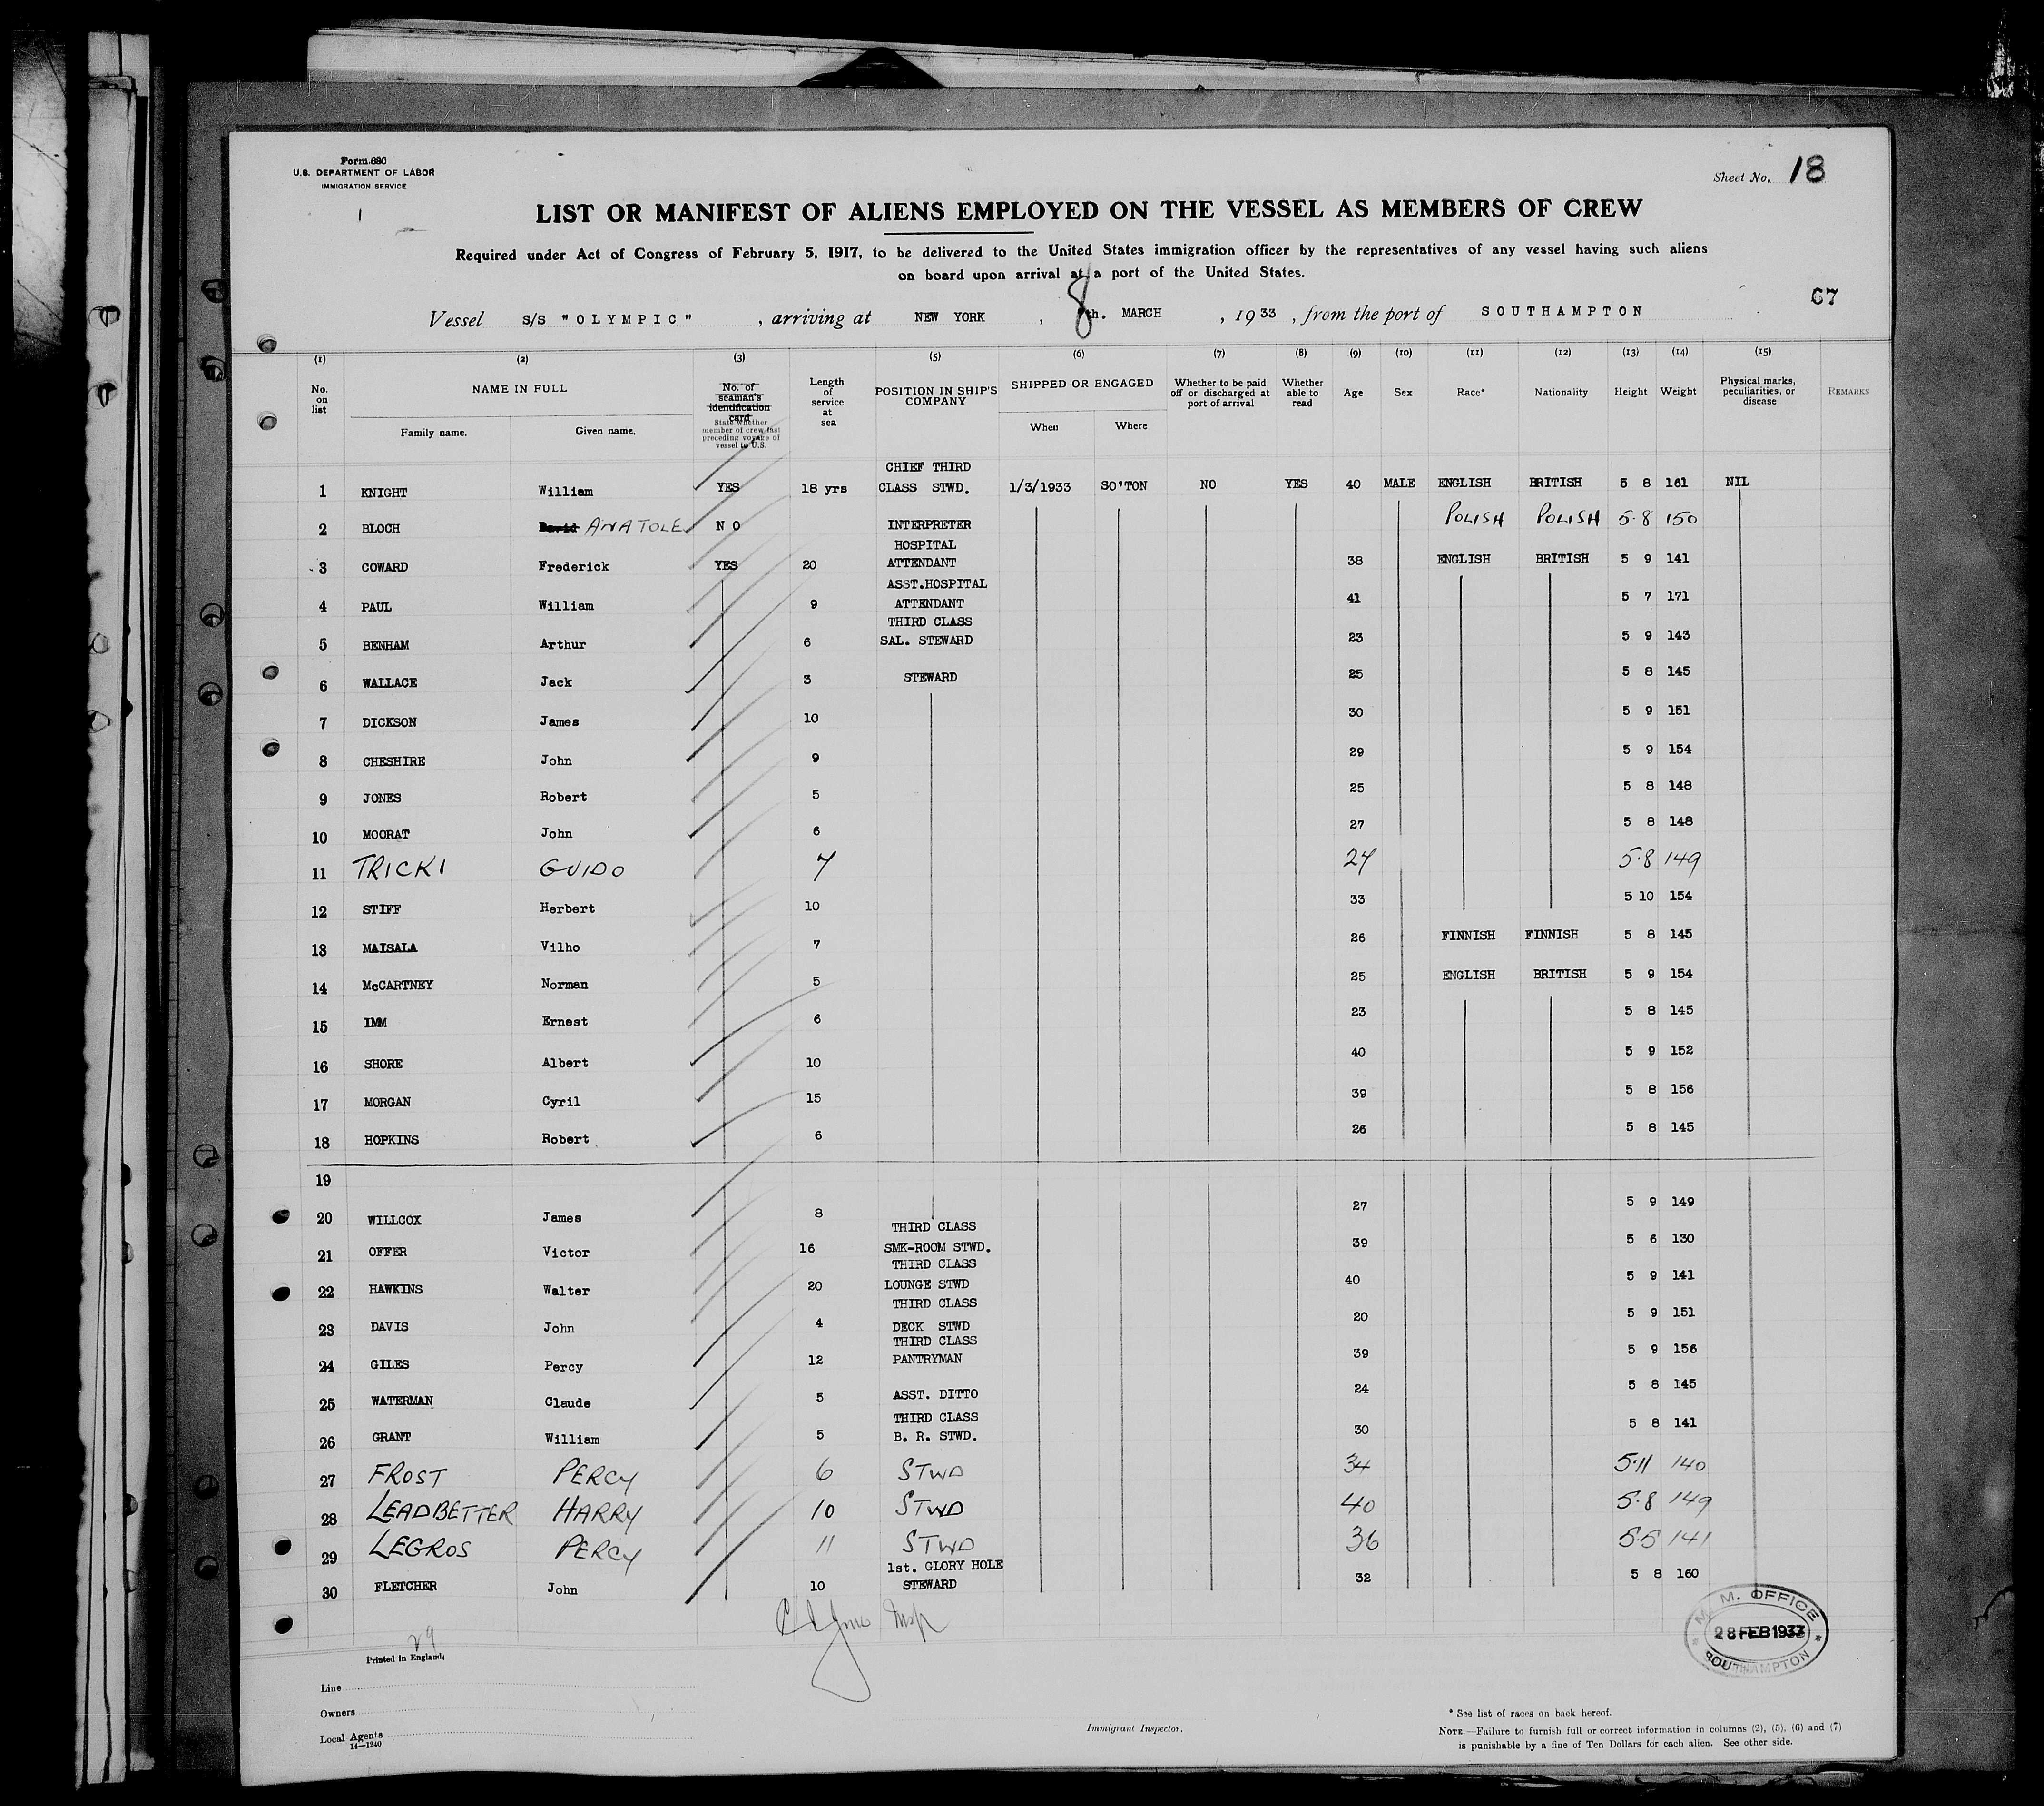 Form 680
U.S. DEPARTMENT OF LABOR
IMMIGRATION SERVICE
Sheet No. 18
LIST OR MANIFEST OF ALIENS EMPLOYED ON THE VESSEL AS MEMBERS OF CREW
Required under Act of Congress of February 5, 1917, to be delivered to the United States immigration officer by the representatives of any vessel having such aliens
on board upon arrival at a port of the United States.
67
Vessel S/S "OLYMPIC", arriving at NEW YORK, 8th. MARCH, 1933, from the port of SOUTHAMPTON
(1) (2) (3) (5) (6) (7) (8) (9) (10) (11) (12) (13) (14) (15)
No. on list NAME IN FULL Family name. Given name. No. of seaman's identification card State whether member of crew last preceding voyage of vessel to U.S. Length of service at sea POSITION IN SHIP'S COMPANY SHIPPED OR ENGAGED When Where Whether to be paid off or discharged at port of arrival Whether able to read Age Sex Race* Nationality Height Weight Physical marks, peculiarities, or disease REMARKS
1 KNIGHT William YES 18 yrs CHIEF THIRD CLASS STWD. 1/3/1933 SO'TON NO YES 40 MALE ENGLISH BRITISH 5 8 161 NIL
2 BLOCH David ANATOLE NO INTERPRETER POLISH POLISH 5·8 150
3 COWARD Frederick YES 20 HOSPITAL ATTENDANT 38 ENGLISH BRITISH 5 9 141
4 PAUL William 9 ASST.HOSPITAL ATTENDANT 41 5 7 171
5 BENHAM Arthur 6 THIRD CLASS SAL. STEWARD 23 5 9 143
6 WALLACE Jack 3 STEWARD 25 5 8 145
7 DICKSON James 10 30 5 9 151
8 CHESHIRE John 9 29 5 9 154
9 JONES Robert 5 25 5 8 148
10 MOORAT John 6 27 5 8 148
11 TRICKI GUIDO 7 24 5·8 149
12 STIFF Herbert 10 33 5 10 154
13 MAISALA Vilho 7 26 FINNISH FINNISH 5 8 145
14 McCARTNEY Norman 5 25 ENGLISH BRITISH 5 9 154
15 IMM Ernest 6 23 5 8 145
16 SHORE Albert 10 40 5 9 152
17 MORGAN Cyril 15 39 5 8 156
18 HOPKINS Robert 6 26 5 8 145
19
20 WILLCOX James 8 27 5 9 149
21 OFFER Victor 16 THIRD CLASS SMK-ROOM STWD. 39 5 6 130
22 HAWKINS Walter 20 THIRD CLASS LOUNGE STWD 40 5 9 141
23 DAVIS John 4 THIRD CLASS DECK STWD 20 5 9 151
24 GILES Percy 12 THIRD CLASS PANTRYMAN 39 5 9 156
25 WATERMAN Claude 5 ASST. DITTO 24 5 8 145
26 GRANT William 5 THIRD CLASS B. R. STWD. 30 5 8 141
27 FROST PERCY 6 STWD 34 5·11 140
28 LEADBETTER HARRY 10 STWD 40 5·8 149
29 LEGROS PERCY 11 STWD 36 5·5 141
30 FLETCHER John 10 1st. GLORY HOLE STEWARD 32 5 8 160
Insp
29
M. M. OFFICE
28 FEB 1933
SOUTHAMPTON
Printed in England.
Line
Owners
Local Agents
14—1240
Immigrant Inspector.
* See list of races on back hereof.
NOTE.—Failure to furnish full or correct information in columns (2), (5), (6) and (7)
is punishable by a fine of Ten Dollars for each alien. See other side.